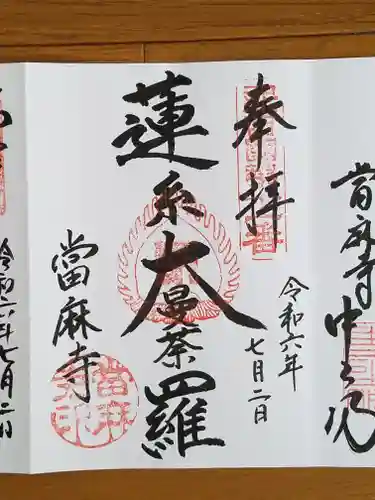 當麻寺 中之坊
奉拝
令和六年
七月二日
蓮糸大曼荼羅
當麻寺
令和六年七月二日